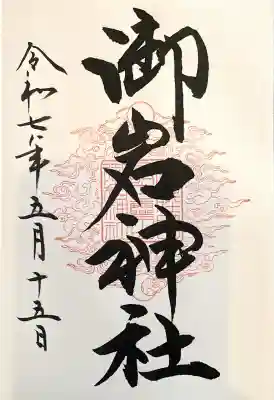 御岩神社
令和七年五月十五日